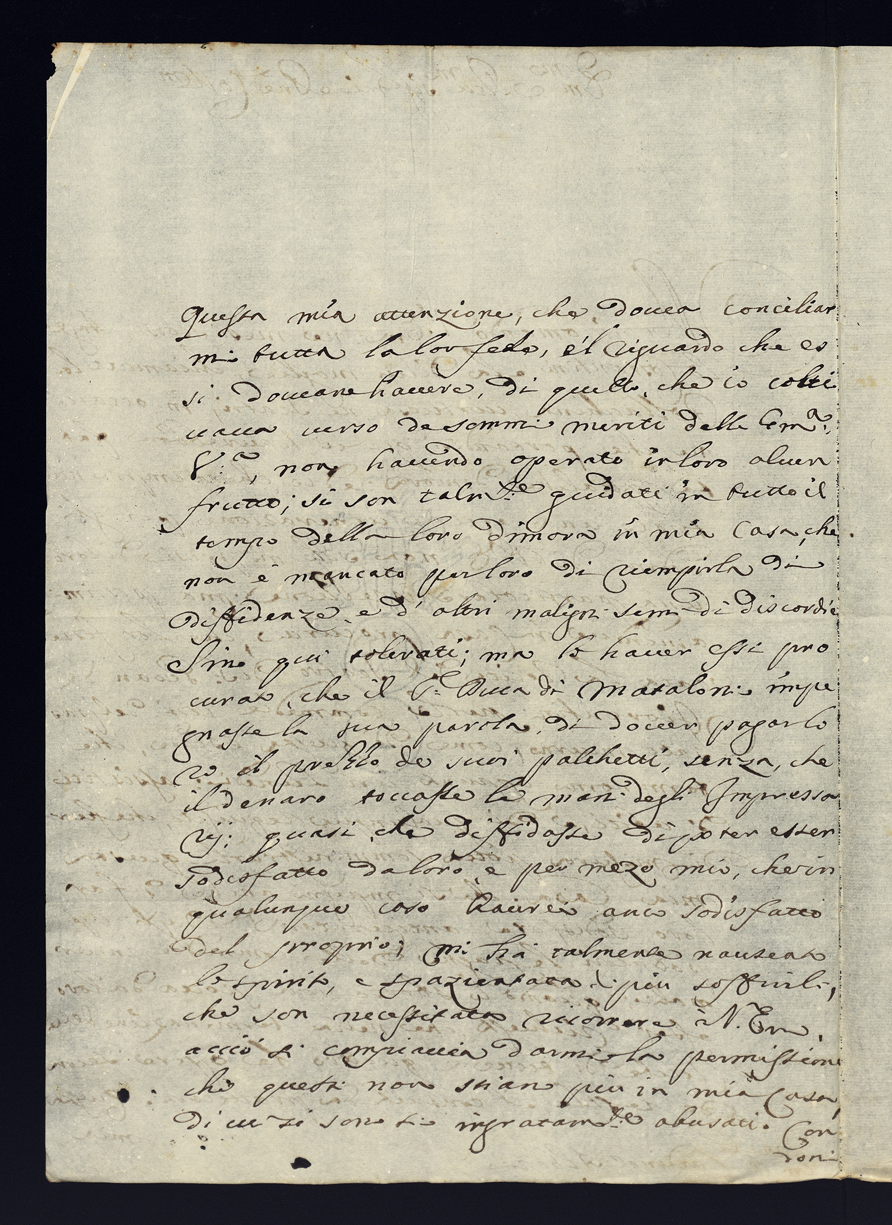 Questa mia attenzione, che douea conciliar
mi tutta la lor fede, e'l riguardo che es
si doueano hauere, di quello, che io colti
uaua uerso de sommi meriti della Em.ª
V.ª, non hauendo operato in loro alcun
frutto; si son talm.te guidati in tutto il
tempo della loro dimora in mia Casa, che
non è mancato per loro di riempirla di
diffidenze, e d'altri maligni semi di discordie
Sino quì tolerati; ma lo hauer essi pro
curato, che il S.r Duca di Mataloni impe
gnasse la sua parola, di douer pagar lo
ro il prezzo de suoi palchetti, senza, che
il denaro toccasse le mani degli Impressa
rij; quasi che diffidasse di poter esser
sodisfatto da loro, e per mezo mio, che in
qualunque caso haurei anco sodisfatto
del proprio; mi hà talmente nauseato
lo spirito, e spazientata di più soffrirli,
che son necessitata ricorrere à V. Em.
acciò si compiaccia darmi la permissione
che questi non stian più in mia Casa,
di cui si sono sì ingratam.te abusati. Con
roni